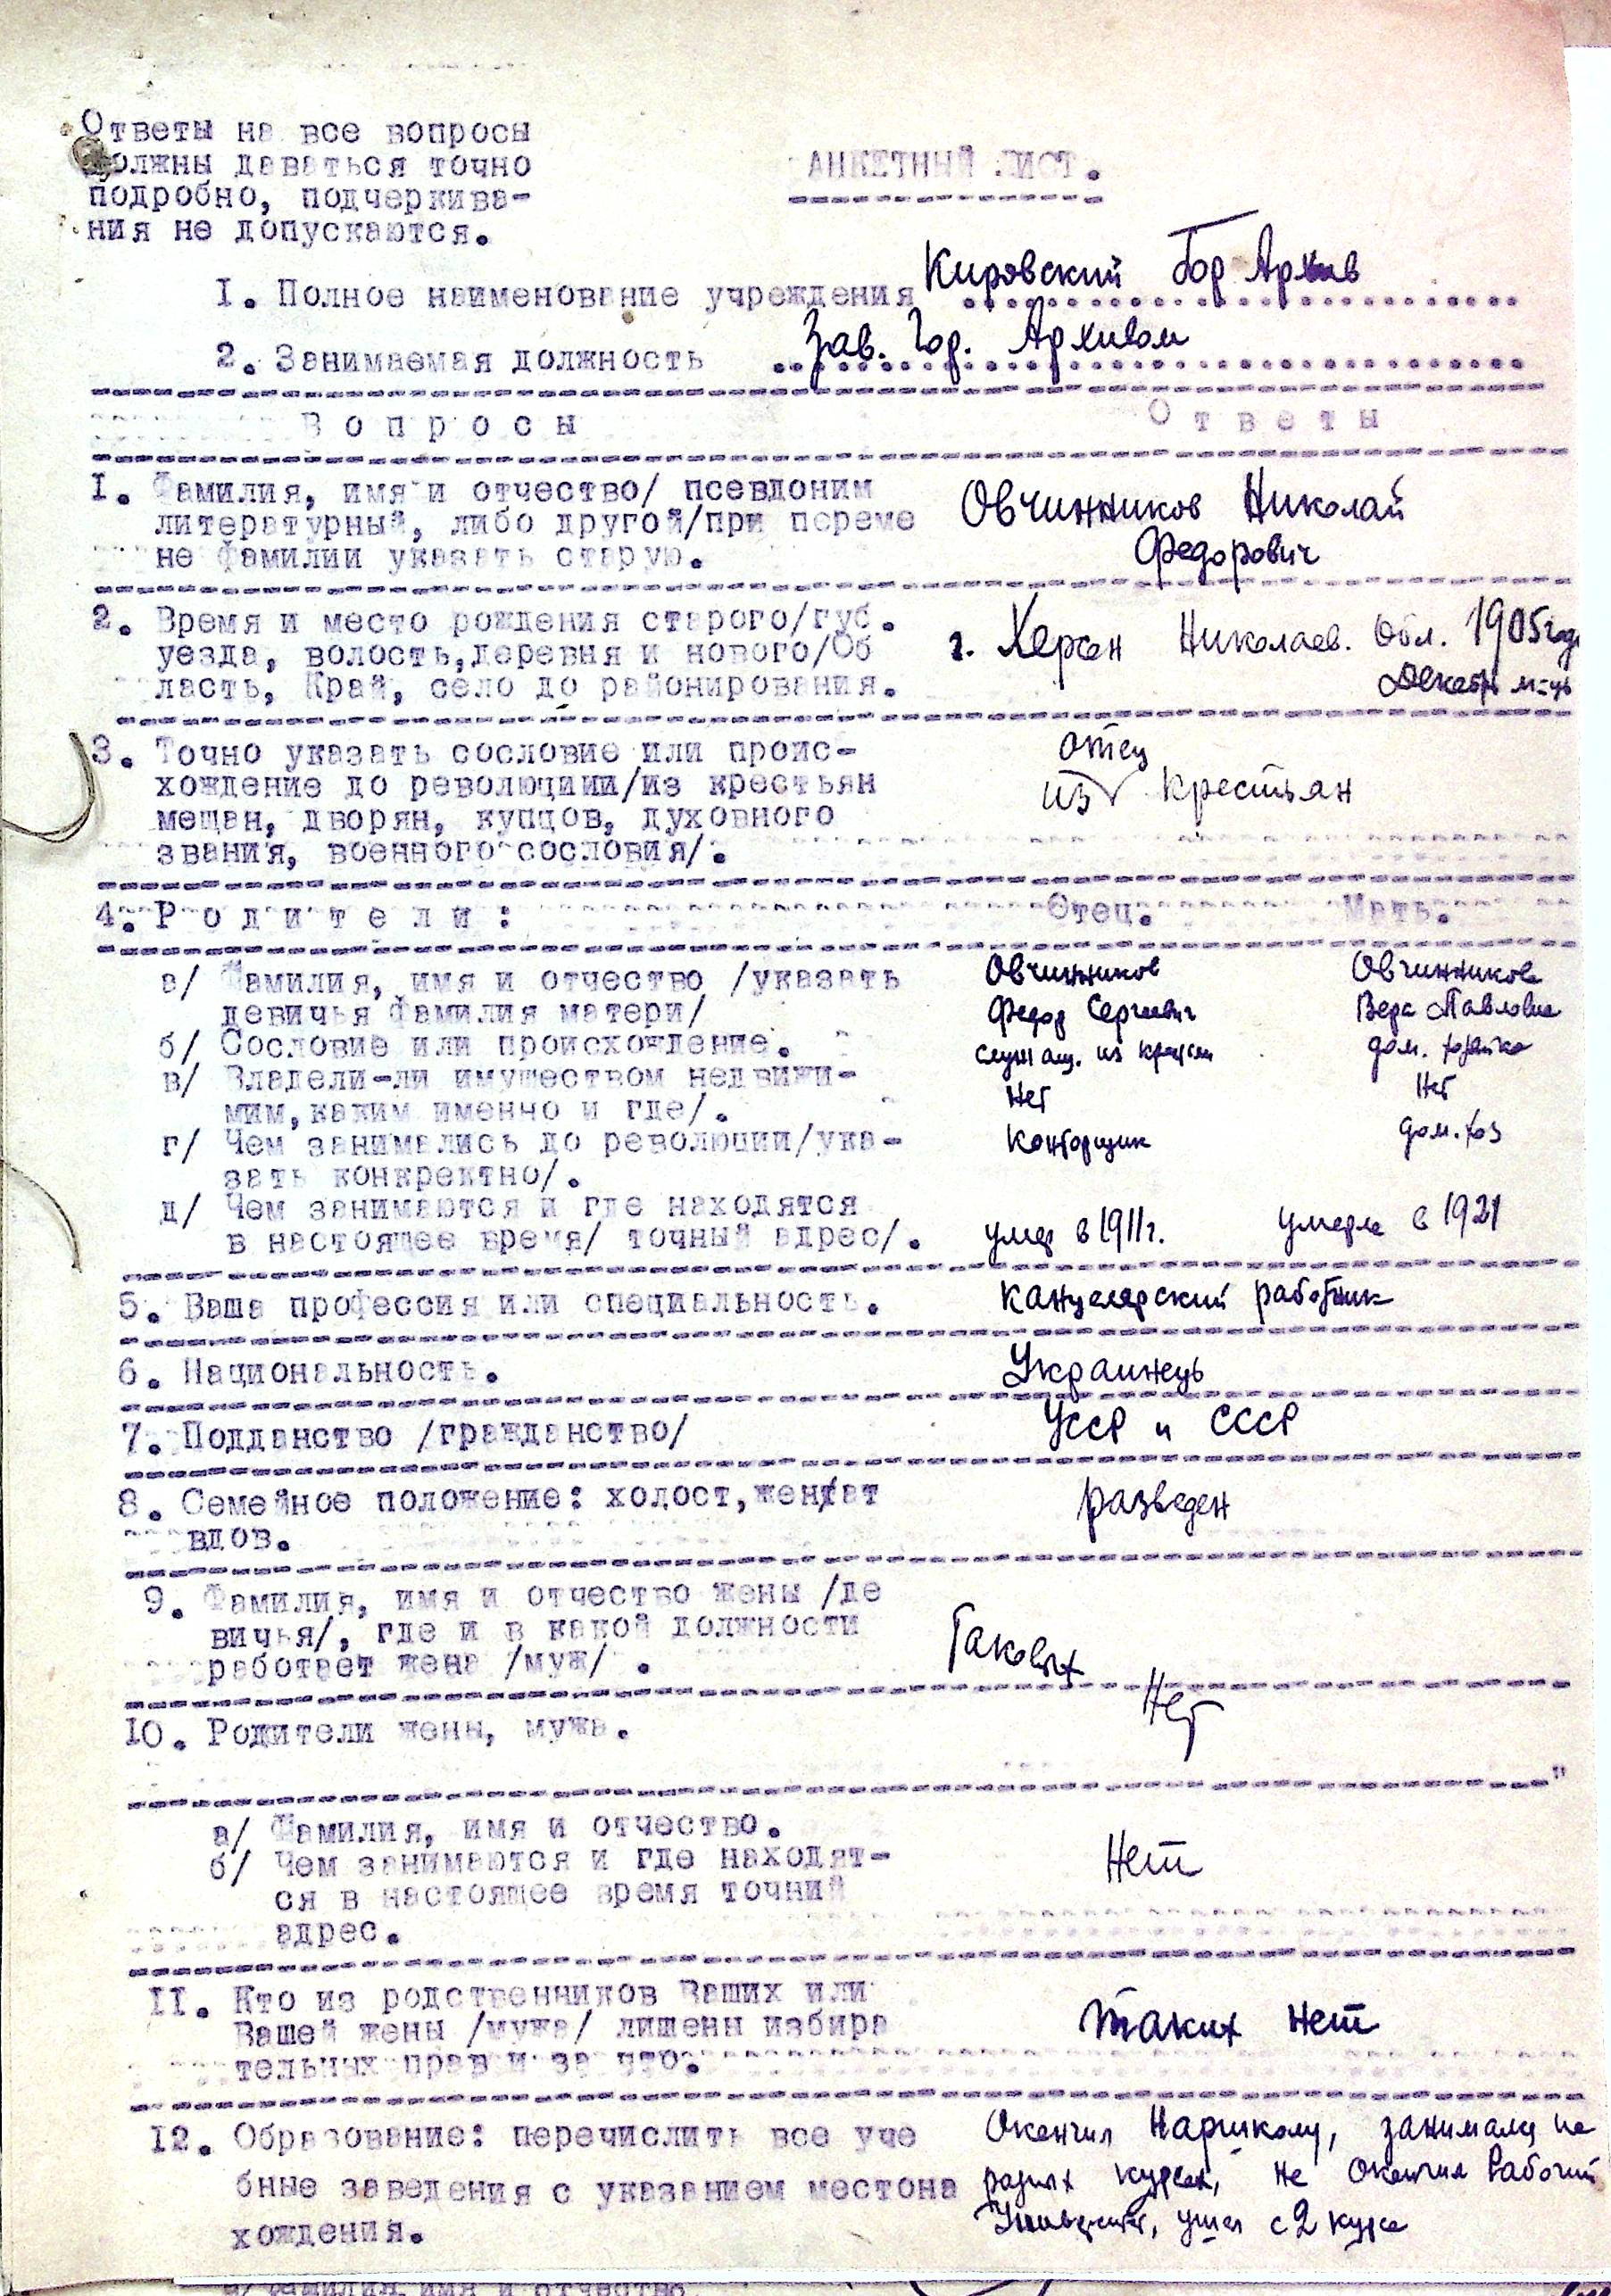 Ответы на все вопросы
должны даваться точно
подробно, подчеркива-
ния не допускаются.
АНКЕТНЫЙ ЛИСТ.
1. Полное наименование учреждения Кировский Гор Архив
2. Занимаемая должность Зав. Гор. Архивом
Вопросы Ответы
1. Фамилия, имя и отчество/ псевдоним
литературный, либо другой/при переме
не фамилии указать старую.
Овчинников Николай
Федорович
2. Время и место рождения старого/губ.
уезда, волость, деревня и нового/Об
ласть, Край, село до районирования.
г. Херсон Николаев. Обл. 1905 год
Декабрь м-ць
3. Точно указать сословие или проис-
хождение до революциии/из крестьян
мещан, дворян, купцов, духовного
звания, военного сословия/.
отец
из крестьян
4. Родители: Отец. Мать.
а/ Фамилия, имя и отчество /указать
девичья фамилия матери/
Овчинников Овчинникова
Федор Сергеевич Вера Павловна
б/ Сословие или происхождение. служащ. из крестьян дом. хозяйка
в/ Владели-ли имуществом недвижи-
мим, каким именно и где/.
Нет Нет
г/ Чем занимались до революции/ука-
зать конкретно/.
Конторщик дом. хоз
д/ Чем занимаются и где находятся
в настоящее время/ точный адрес/.
умер в 1911 г. умерла в 1921
5. Ваша профессия или специальность. Канцелярский работник
6. Национальность. Украинець
7. Подданство /гражданство/ УССР и СССР
8. Семейное положение: холост, женат
вдов.
разведен
9. Фамилия, имя и отчество жены /де
вичья/, где и в какой должности
работает жена /муж/ .
Таковых
Нет
10. Родители жены, мужа.
а/ Фамилия, имя и отчество.
б/ Чем занимаются и где находят-
ся в настоящее время точний
адрес.
Нет
11. Кто из родственников Ваших или
Вашей жены /мужа/ лишены избира
тельных прав и за что.
Таких нет
12. Образование: перечислить все уче
бные заведения с указанием местона
хождения.
Окончил Нар школу, занимался на
разных курсах, не окончил Рабочий
Университет, ушел с 2 курса